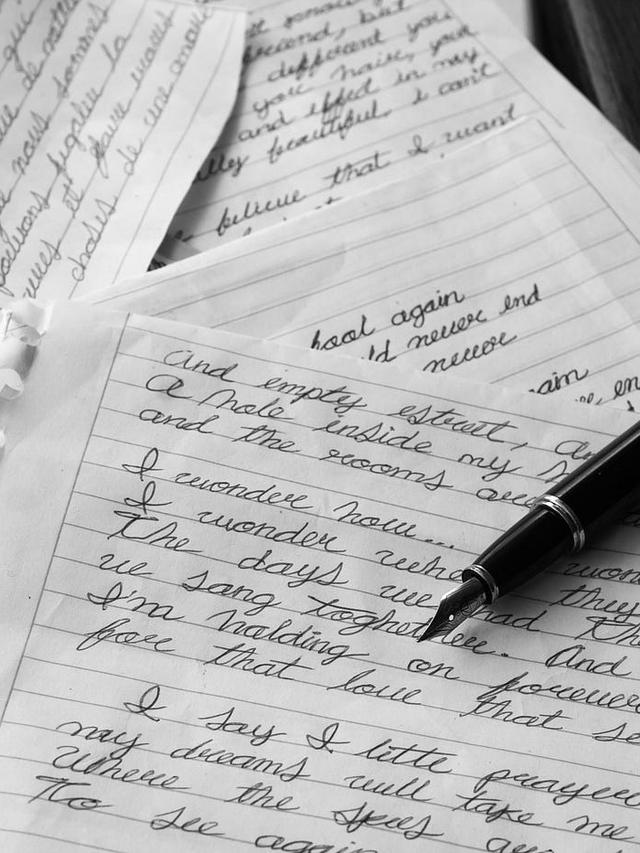 qui
nous sommes
rigoler la
et faire
choses de une
second, but
different you
you have, your
and effed in my
lly beautiful. I can't
believe that I want
hool again
ld never end
never
ain
en
And empty estreet, an
a hole inside my s
and the rooms are
I wonder how...
I wonder who
The days we had the
we sang toghether. And
I'm holding on forever
for that love that se
I say I little prayer
my dreams will take me
Where the skies are
To see again